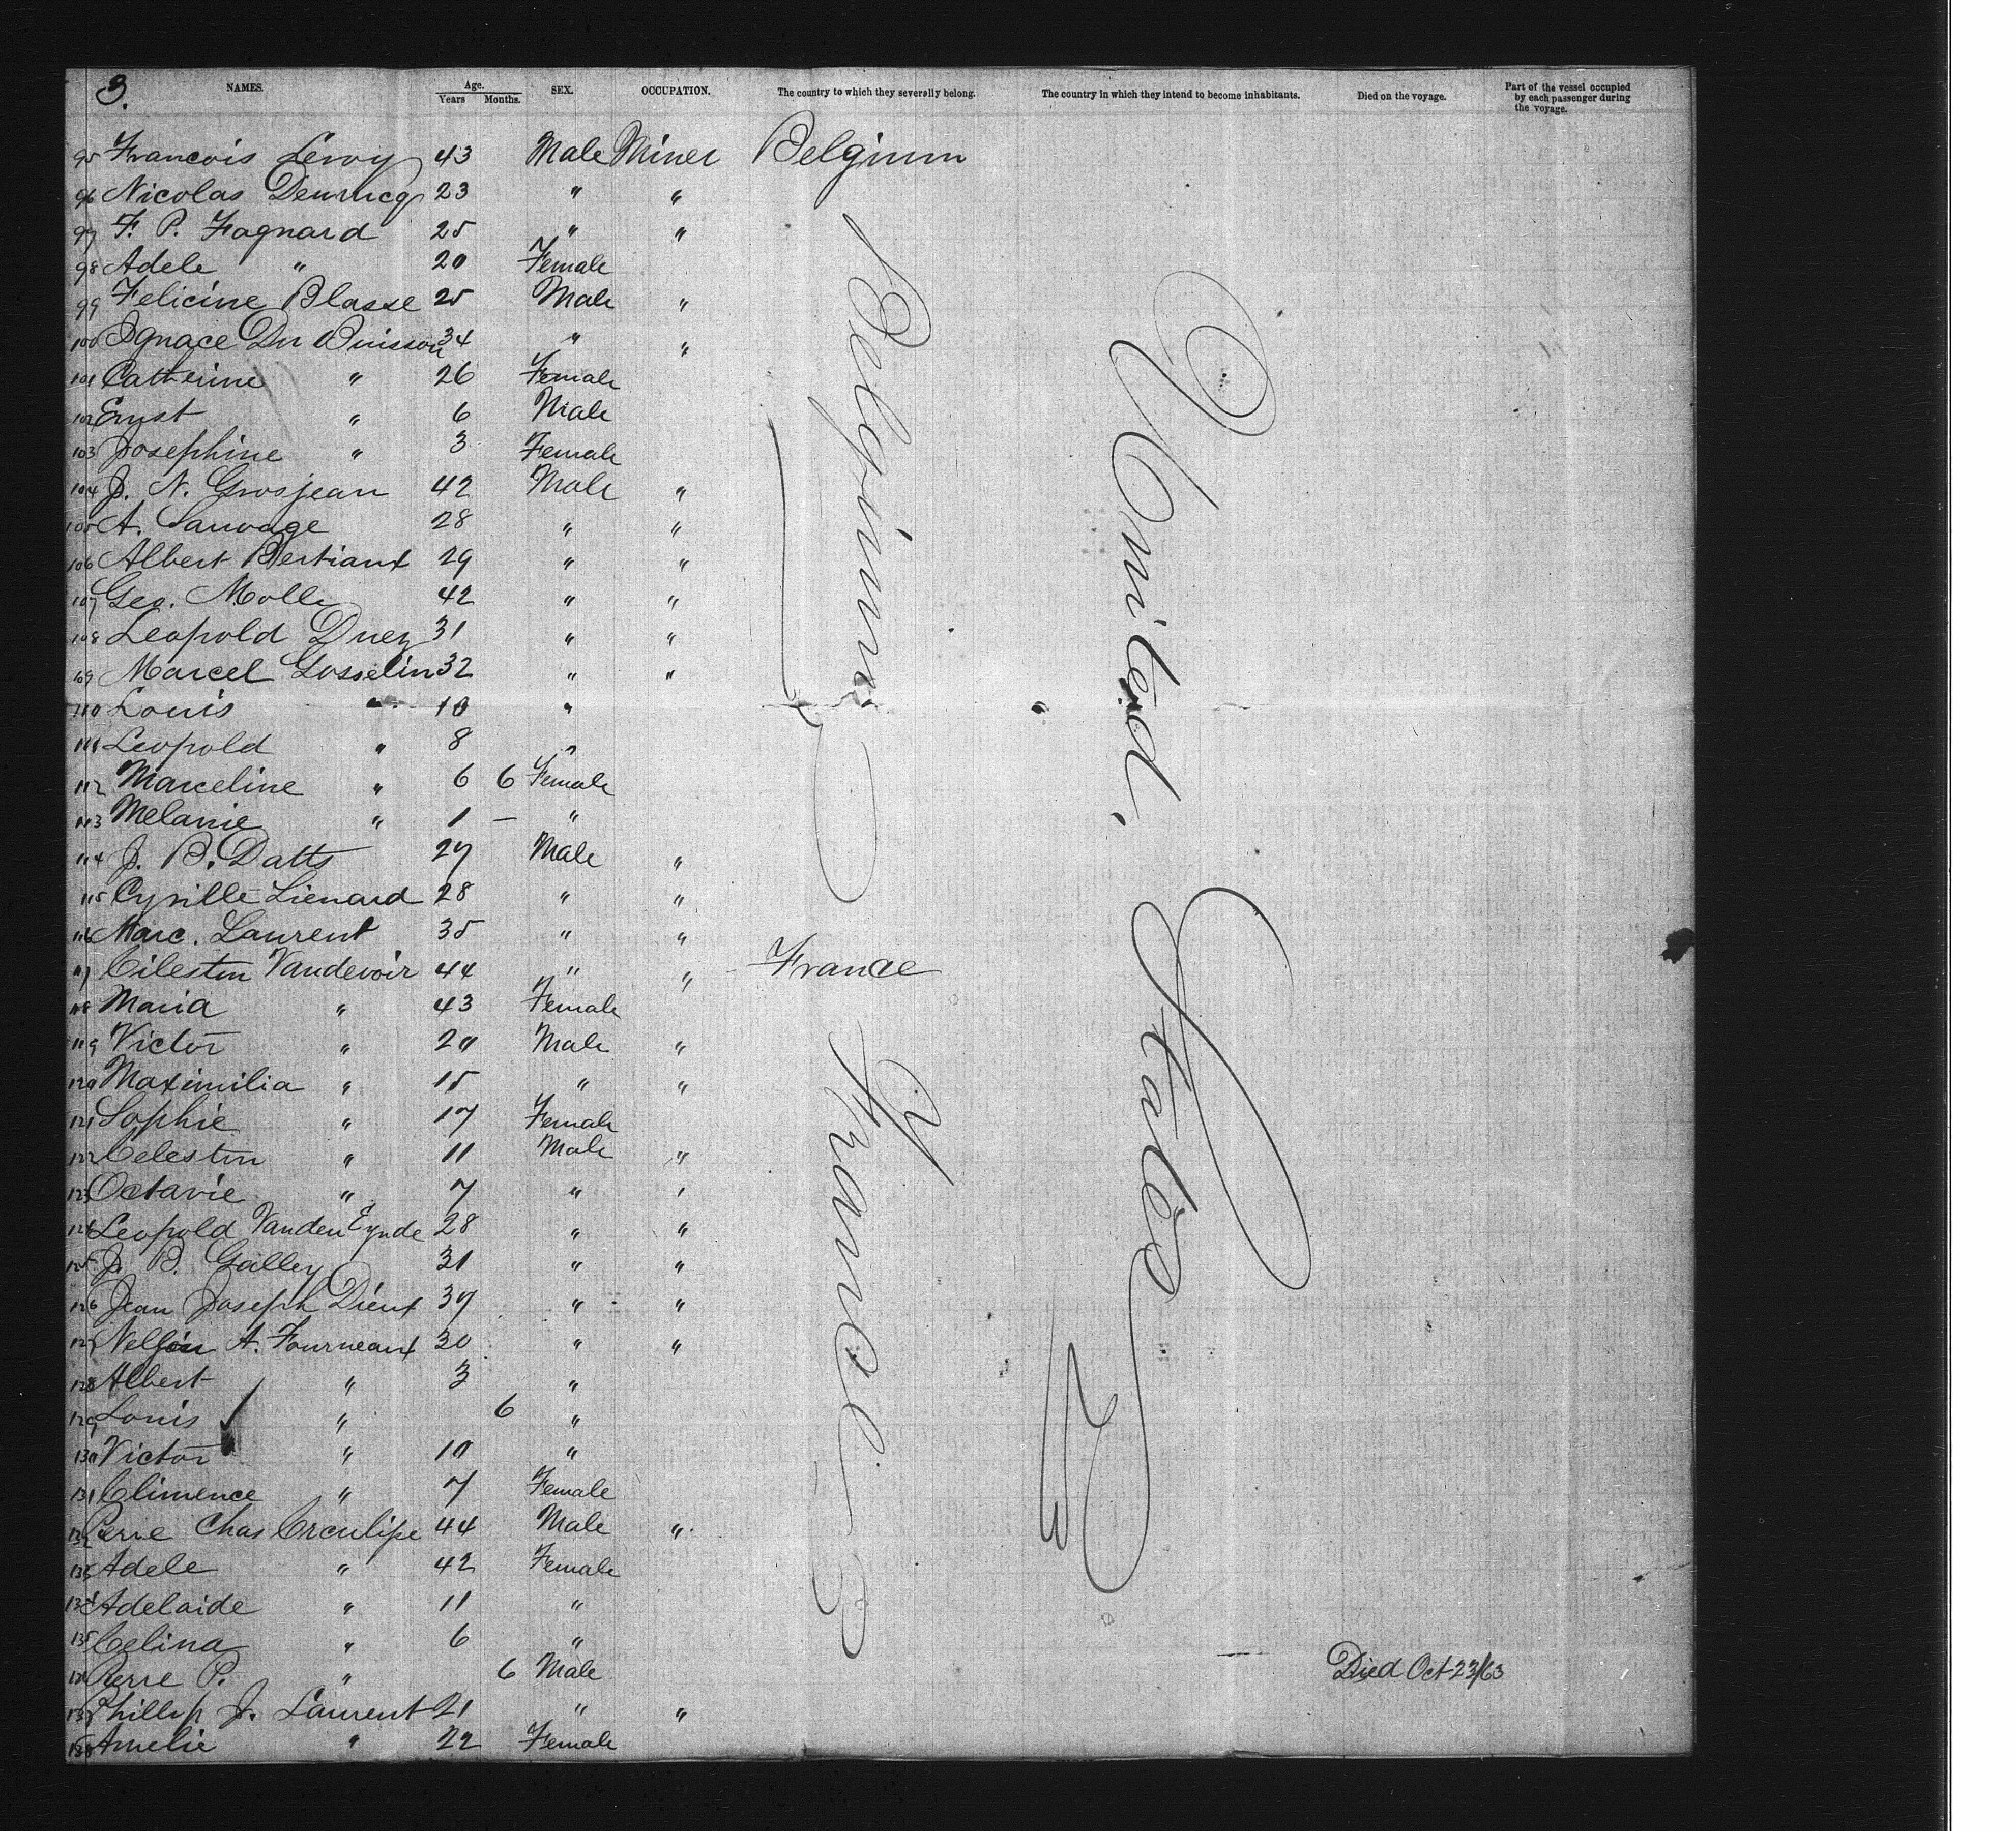 3.
NAMES. Age. Years Months. SEX. OCCUPATION. The country to which they severally belong. The country in which they intend to become inhabitants. Died on the voyage. Part of the vessel occupied by each passenger during the voyage.
95 Francois Leroy 43 Male Miner Belgium
96 Nicolas 23 " "
97 F. P. Fagnard 25 " "
98 Adele " 20 Female
99 Felicine Blasse 25 Male "
100 Ignace Du Buisson 34 " "
101 Catherine " 26 Female
102 Ernst " 6 Male
103 Josephine " 3 Female
104 J. N. Grosjean 42 Male "
105 A. Sauvage 28 " "
106 Albert Bertiaux 29 " "
107 Geo. Molle 42 " "
108 Leopold Duez 31 " "
109 Marcel Gosselin 32 " "
110 Louis " 10 "
111 Leopold " 8 "
112 Marceline " 6 6 Female
113 Melanie " 1 — "
114 J. B. Datts 27 Male "
115 Cyrille Lienard 28 " "
116 Marc. Laurent 35 " "
117 Cilestin Vandevoir 44 " " France
118 Maria " 43 Female
119 Victor " 20 Male "
120 Maximilia " 15 " "
121 Sophie " 17 Female
122 Celestin " 11 Male "
123 Octavie " 7 " '
124 Leopold Vanden Eynde 28 " "
125 J. B. Galley 31 " "
126 Jean Joseph Dieux 37 " "
127 A. Fourneaux 30 " "
128 Albert " 3 "
129 Louis " 6 "
130 Victor " 10 "
131 Climence " 7 Female
132 Pierre Chas 44 Male "
133 Adele " 42 Female
134 Adelaide " 11 "
135 Celina " 6 "
136 Pierre P. " 6 Male Died Oct 23/63
137 Phillip J. Laurent 21 " "
138 Amelie " 22 Female
Belgium
France
United States